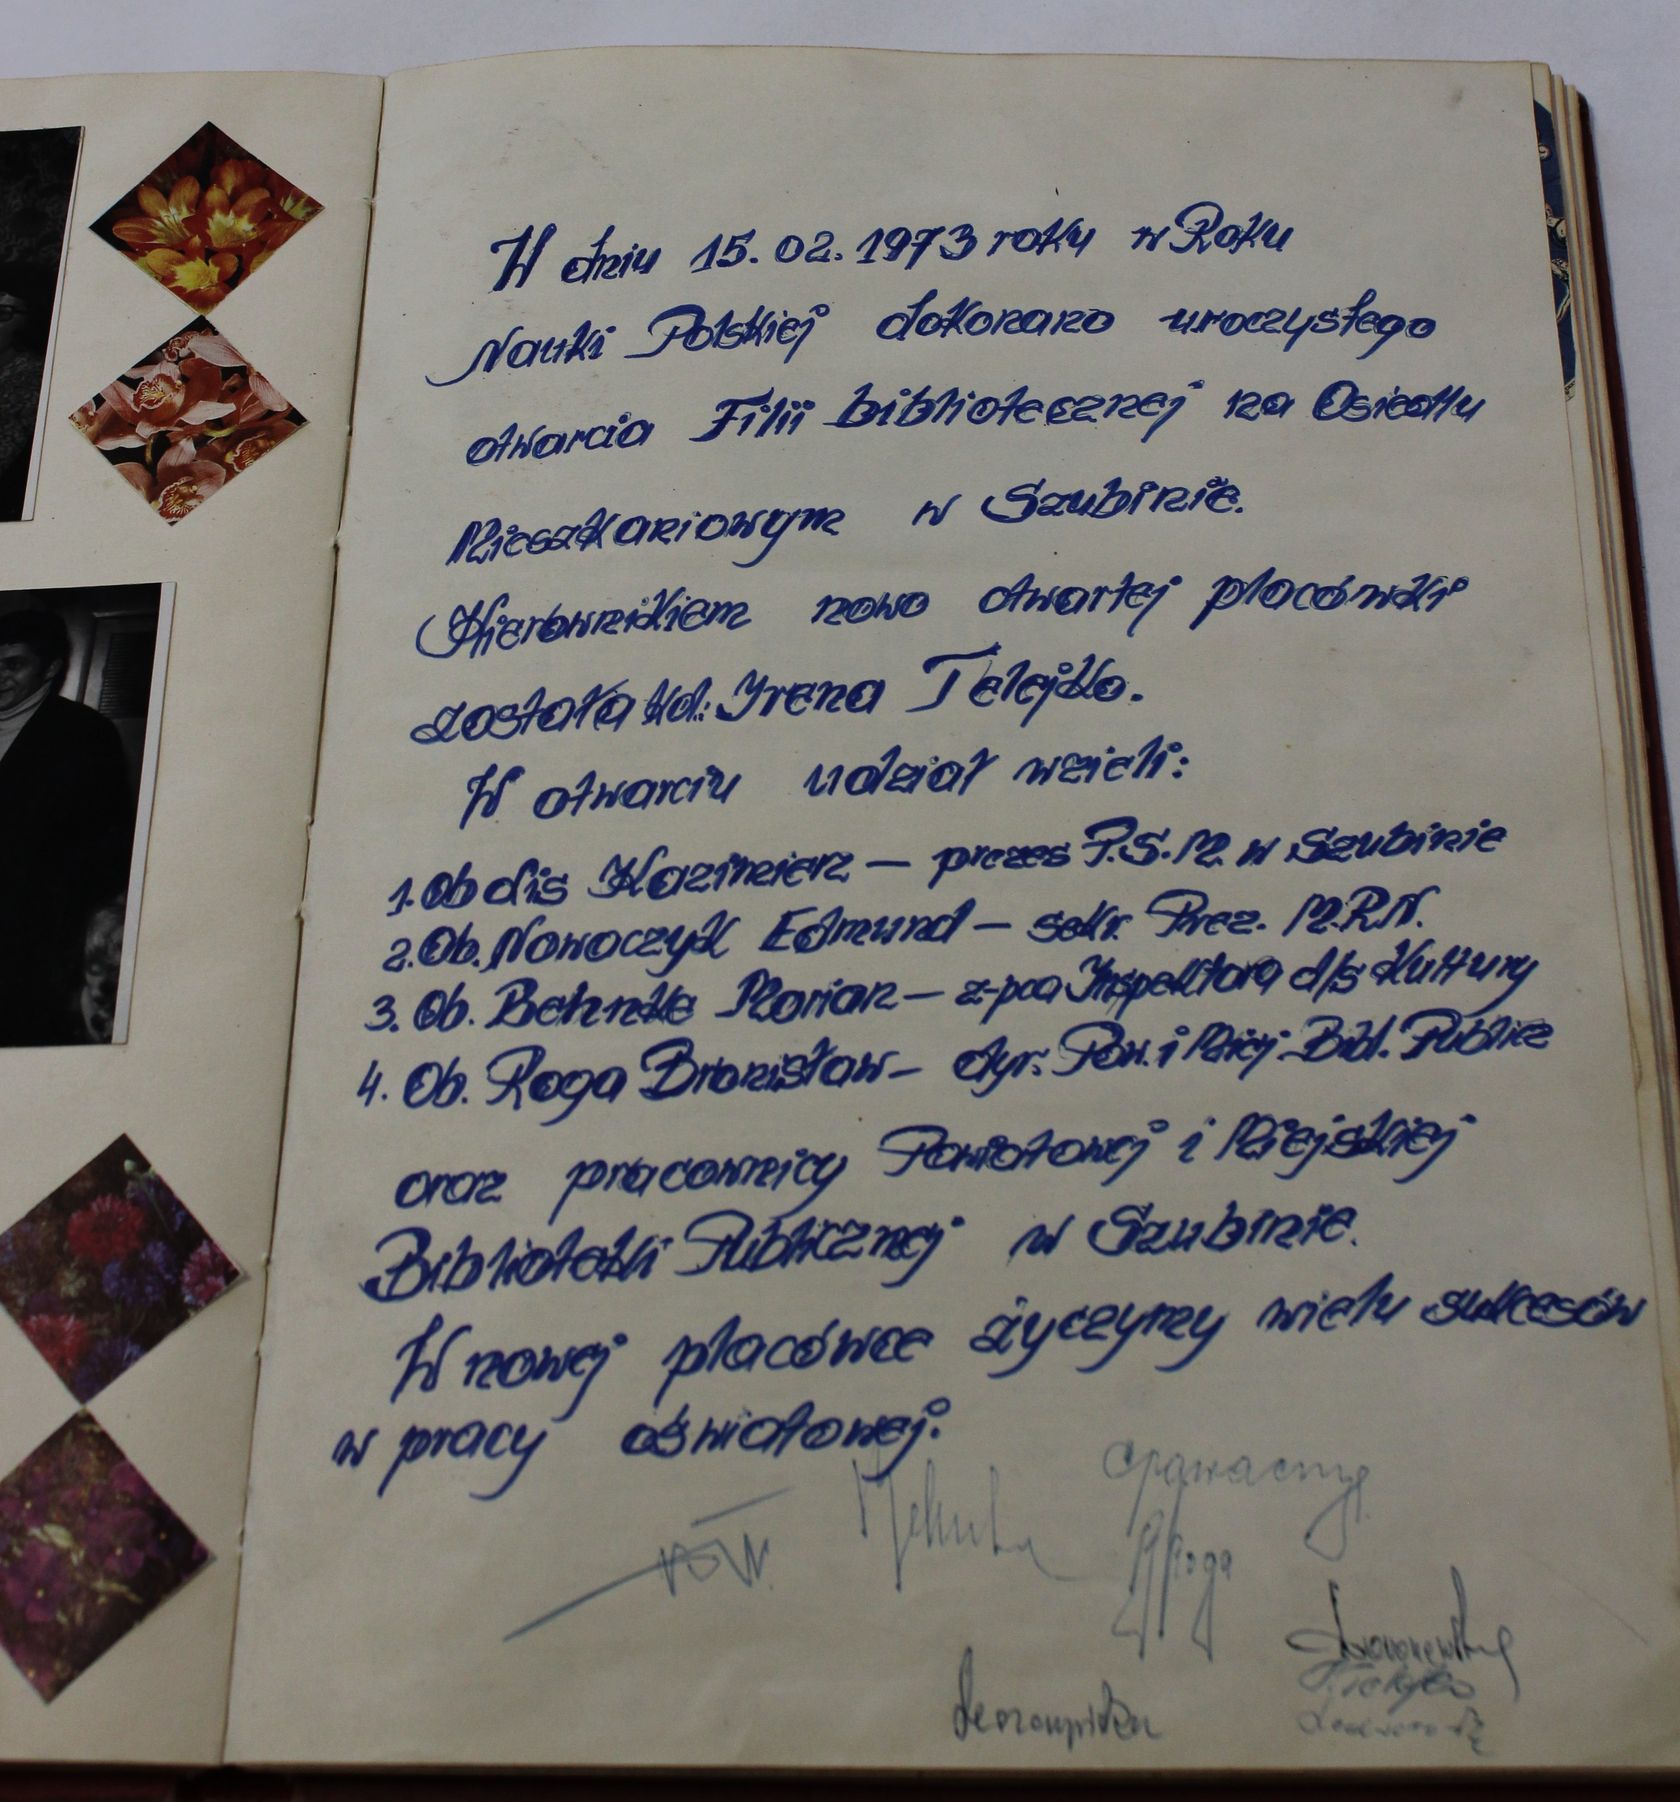 W dniu 15.02.1973 roku w Roku
Nauki Polskiej dokonano uroczystego
otwarcia Filii bibliotecznej na Osiedlu
Mieszkaniowym w Szubinie.
Kierownikiem nowo otwartej placówki
została kol.: Irena Telejko.
W otwarciu udział wzieli:
1. Ob Lis Kazimierz – prezes P.S.M. w Szubinie
2. Ob. Nowoczyk Edmund – sekr. Prez. M.R.N.
3. Ob. Behnke Florian – z-pca Inspektora d/s Kultury
4. Ob. Roga Bronisław – dyr. Pow. i Miej. Bibl. Publicz
oraz pracownicy Powiatowej i Miejskiej
Biblioteki Publicznej w Szubinie.
W nowej placówce życzymy wielu sukcesów
w pracy oświatowej.
Roga